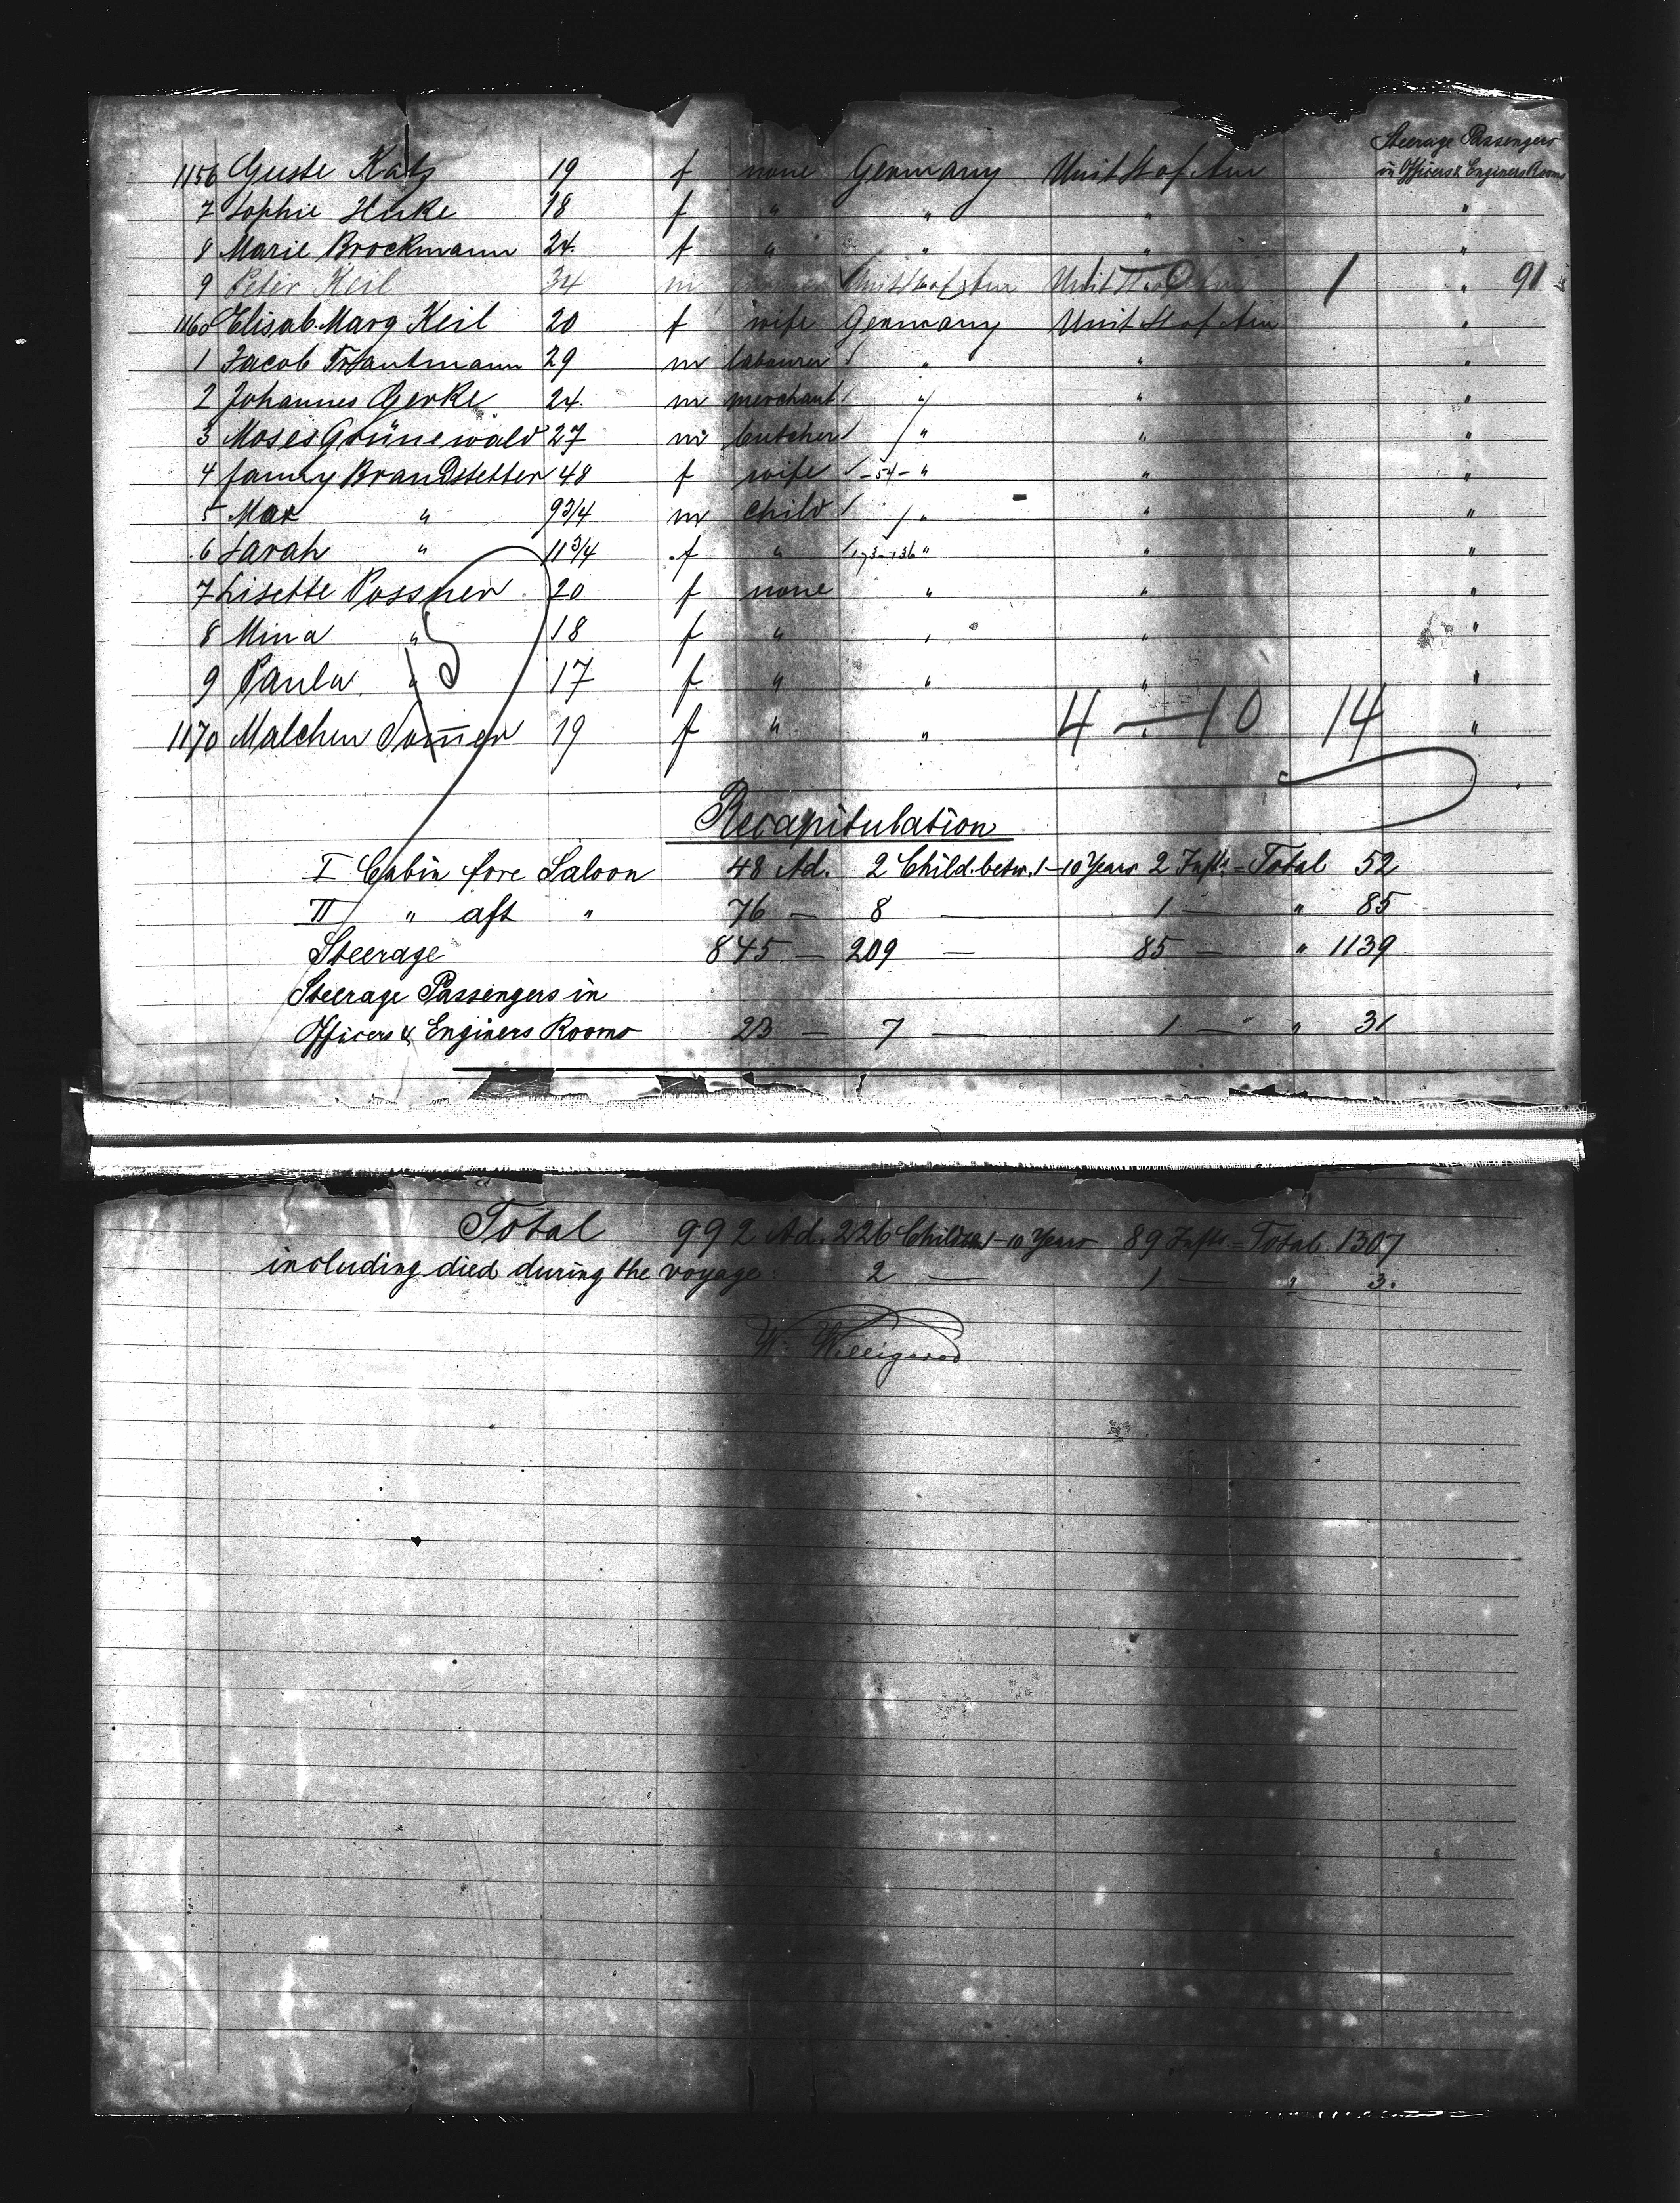 Steerage Passengers
in Officers & Enginers Rooms
1156 Guste Katz 19 f none Germany Unit St of Am
7 Sophie Huke 18 f " " " "
8 Marie Brockmann 24. f " " " "
9 Peter Keil 34 m Unit St of Am Unit St of Am 1 " 91
1160 Elisab. Marg Keil 20 f wife Germany Unit St of Am "
1 Jacob Trautmann 29 m labourer / " " "
2 Johannes Gerke 24. m merchant / " " "
3 Moses Grünewald 27 m butcher / " " "
4 Fanny Brandstetter 48 f wife / -54- " " "
5 Max " 9 3/4 m child / " " "
6 Sarah " 11 3/4 f " / 173-136 " " "
7 Lisette Possner 20 f none " " "
8 Mina " 18 f " " " "
9 Paula " 17 f " " " "
1170 Malchen Som̅er 19 f " " 4 — 10 14 "
Recapitulation
I Cabin fore Saloon 48 Ad. 2 Child. betw. 1-10 Years 2 Infts. = Total 52
II " aft " 76 — 8 — 1 — " 85
Steerage 845 — 209 — 85 — " 1139
Steerage Passengers in
Officers & Enginers Rooms 23 — 7 — 1 — " 31
Total 992 Ad. 226 Children 1-10 Years 89 Infts. = Total 1307
including died during the voyage: 2 — 1 — " 3.
W. Willigerod